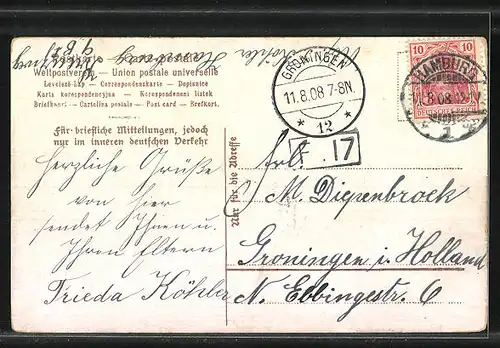 Postkarte — Carte postale
Weltpostverein — Union postale universelle
Levelező-Lap — Correspondenzkarte — Dopisnice
Karta korespondencyjna — Korespondenční lístek
Briefkaart — Cartolina postale — Post card — Brefkort.
Für briefliche Mittellungen, jedoch
nur im inneren deutschen Verkehr
Herzliche Grüße
von hier
sendet Ihnen u.
Ihren Eltern
Frieda Köhler
Nur für die Adresse
GRONINGEN
11.8.08 7-8N.
* 12 *
17
10 10
HAMBURG
8.08
* 1 *
Frl.
M. Diepenbrock
Groningen i. Holland
N. Ebbingestr. 6